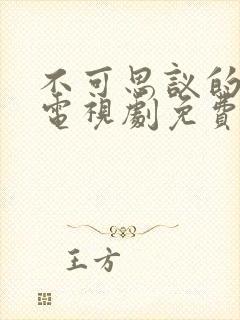 不可思议的
電視劇免費
王方